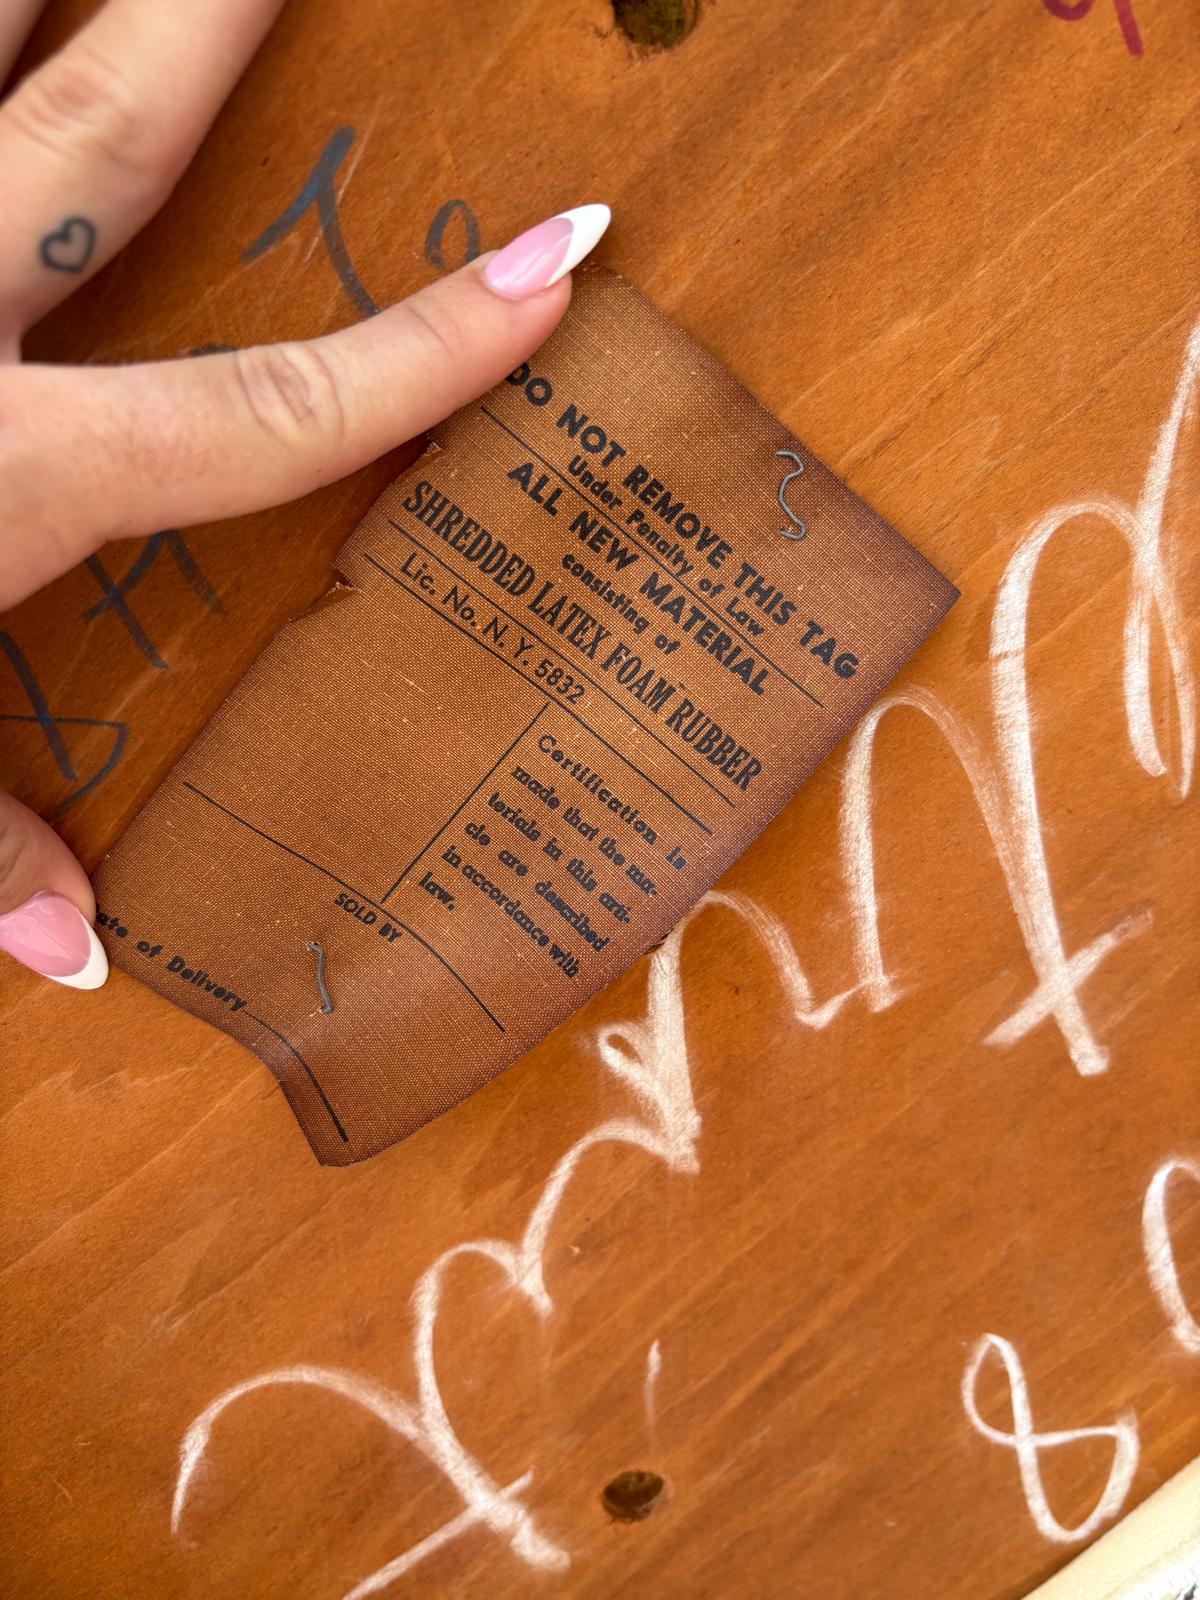 DO NOT REMOVE THIS TAG
Under Penalty of Law
ALL NEW MATERIAL
consisting of
SHREDDED LATEX FOAM RUBBER
Lic. No. N. Y. 5832
Certification is
made that the ma-
terials in this arti-
cle are described
in accordance with
law.
SOLD BY
ate of Delivery
8